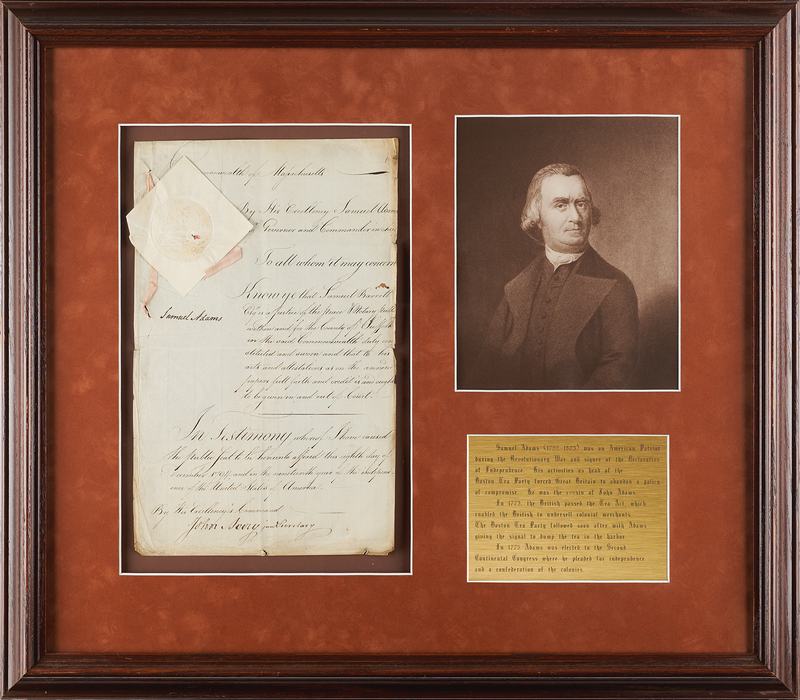 monwealth of Massachusetts
By His Excellency Samuel Adam
Governor and Commander in
To all whom it may concern
Know ye that Samuel
Esq is a Justice of the peace & Notary
within and for the County of Suffolk
in the said Commonwealth duly con
stituted and sworn and that to his
acts and attestations as on the annexed
paper full faith and credit is and ought
to be given in and out of Court.
In Testimony whereof I have caused
the Public Seal to be hereunto affixed this eighth day of
December 1794 and in the nineteenth year of the independ
ence of the United States of America.
By His Excellency's Command
John Avery jun Secretary
Samuel Adams
Samuel Adams was an American Patriot
during the Revolutionary War and signer of the Declaration
of Independence. His activities as head of the
Boston Tea Party forced Great Britain to abandon a policy
of compromise. He was the cousin of John Adams.
In 1773, the British passed the Tea Act, which
enabled the British to undersell colonial merchants.
The Boston Tea Party followed soon after with Adams
giving the signal to dump the tea in the harbor.
In 1775 Adams was elected to the Second
Continental Congress where he pleaded for independence
and a confederation of the colonies.